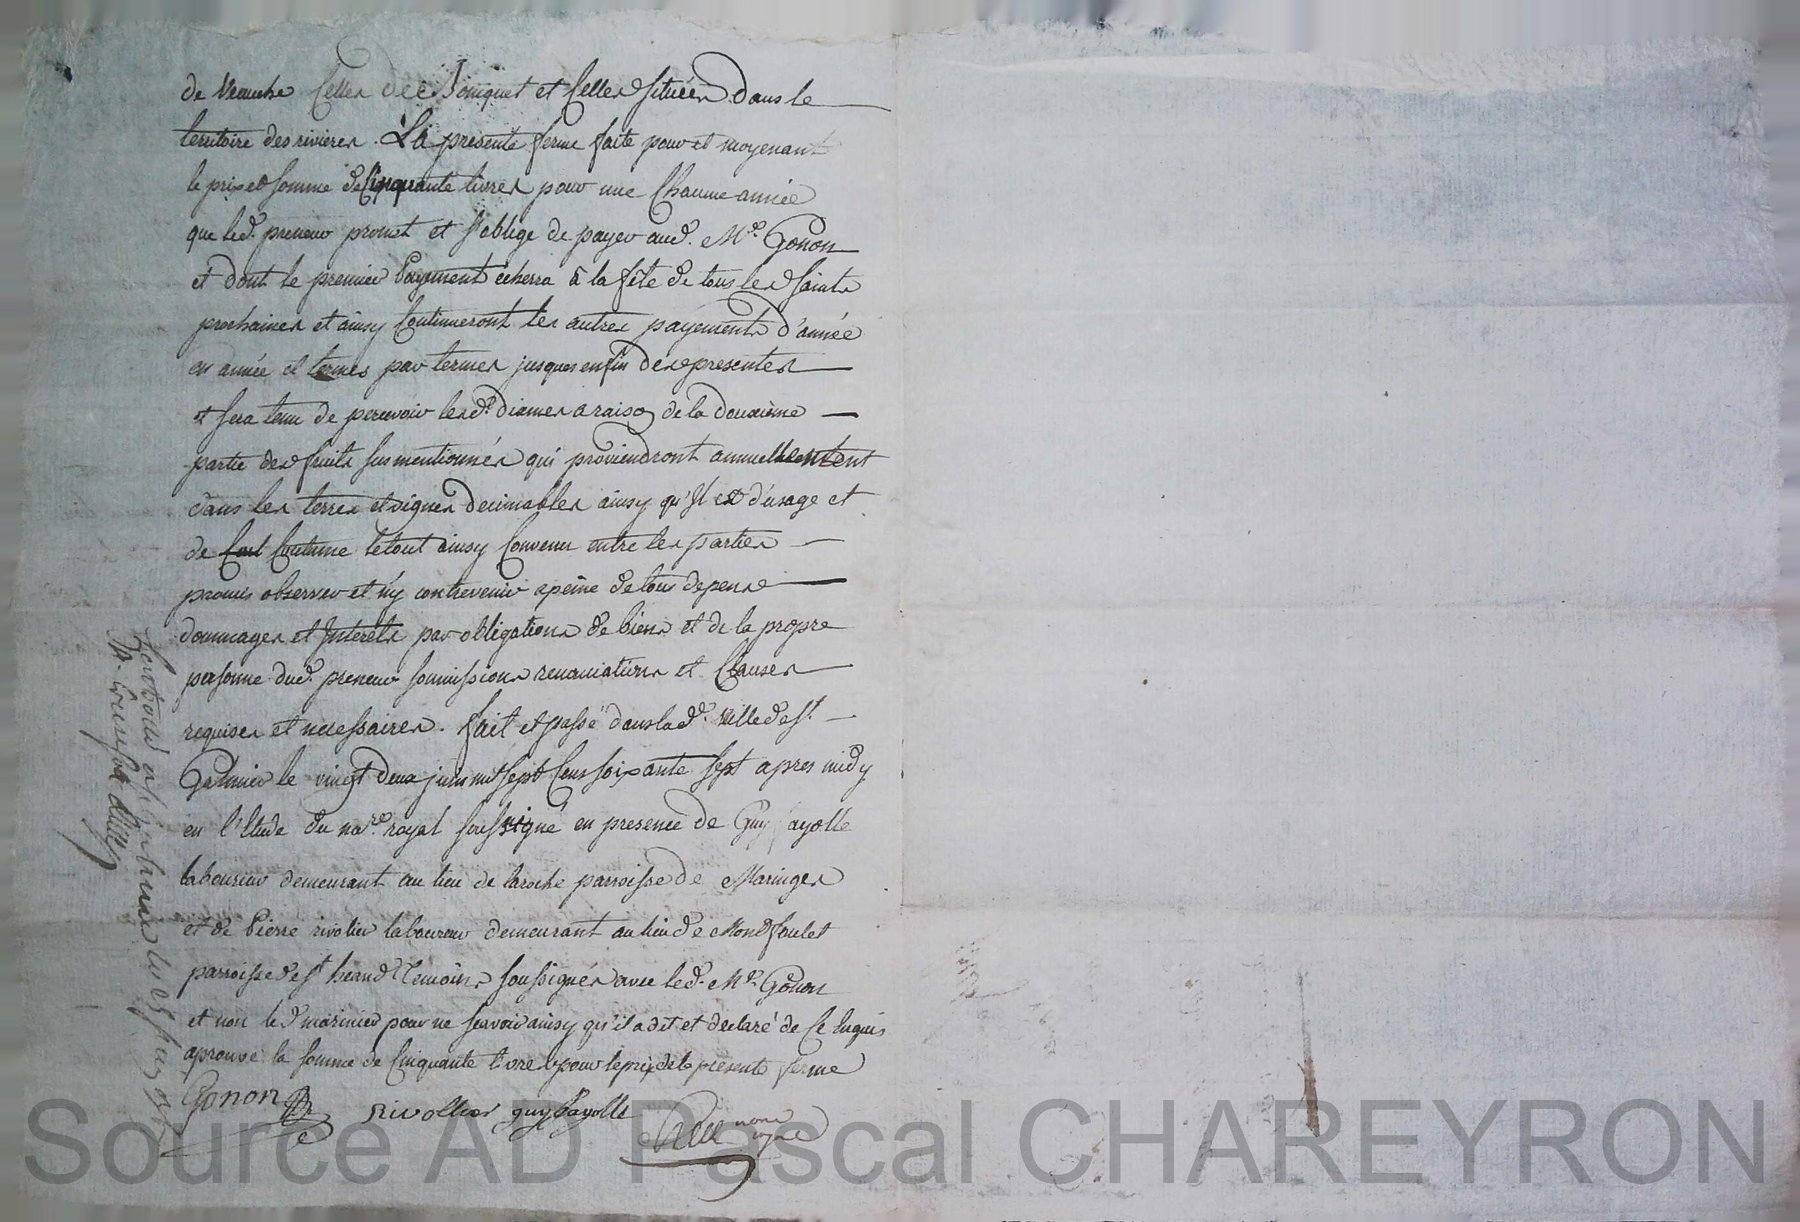 de Veauche Celles de Jonquet et Celles Situées dans le
territoire des rivieres. La presente ferme faite pour et moyenant
le prix et somme de Cinquante livres pour une Chacune année
que led. preneur promet et s'oblige de payer aud. Mr. Gonon
et dont le premier payement echerra à la fête de tous les Saints
prochaines et ainsy Continueront les autres payements d'année
en année et termes par termes jusques en fin des presentes
et sera tenu de percevoir lesd. dixmes a raison de la douzième
partie des fruits susmentionnés qui proviendront annuellement
dans les terres et vignes decimables ainsy qu'Il est d'usage et
de Coutume le tout ainsy Convenu entre les parties
promis observer et n'y contrevenir a peine de tous depens
dommages et Interêts par obligations de biens et de la propre
personne dud. preneur soumissions renonciations et Clauses
requises et necessaires. fait et passé dans lad. ville de St.
Galmier le vingt deux juin mil sept Cens soixante sept apres midy
en l'Etude du nore. royal soussigné en presence de Guy fayolle
laboureur demeurant au lieu de laroche parroisse de Maringes
et de Pierre rivolier laboureur demeurant au lieu de Mont foulet
parroisse de St heand Temoins soussignés avec led. Mr. Gonon
et non led marinier pour ne scavoir ainsy qu'il a dit et declaré de Ce Enquis
aprouve la somme de Cinquante livres pour le prix de la presente ferme
Gonon
rivollier guy fayolle
Source AD Pascal CHAREYRON